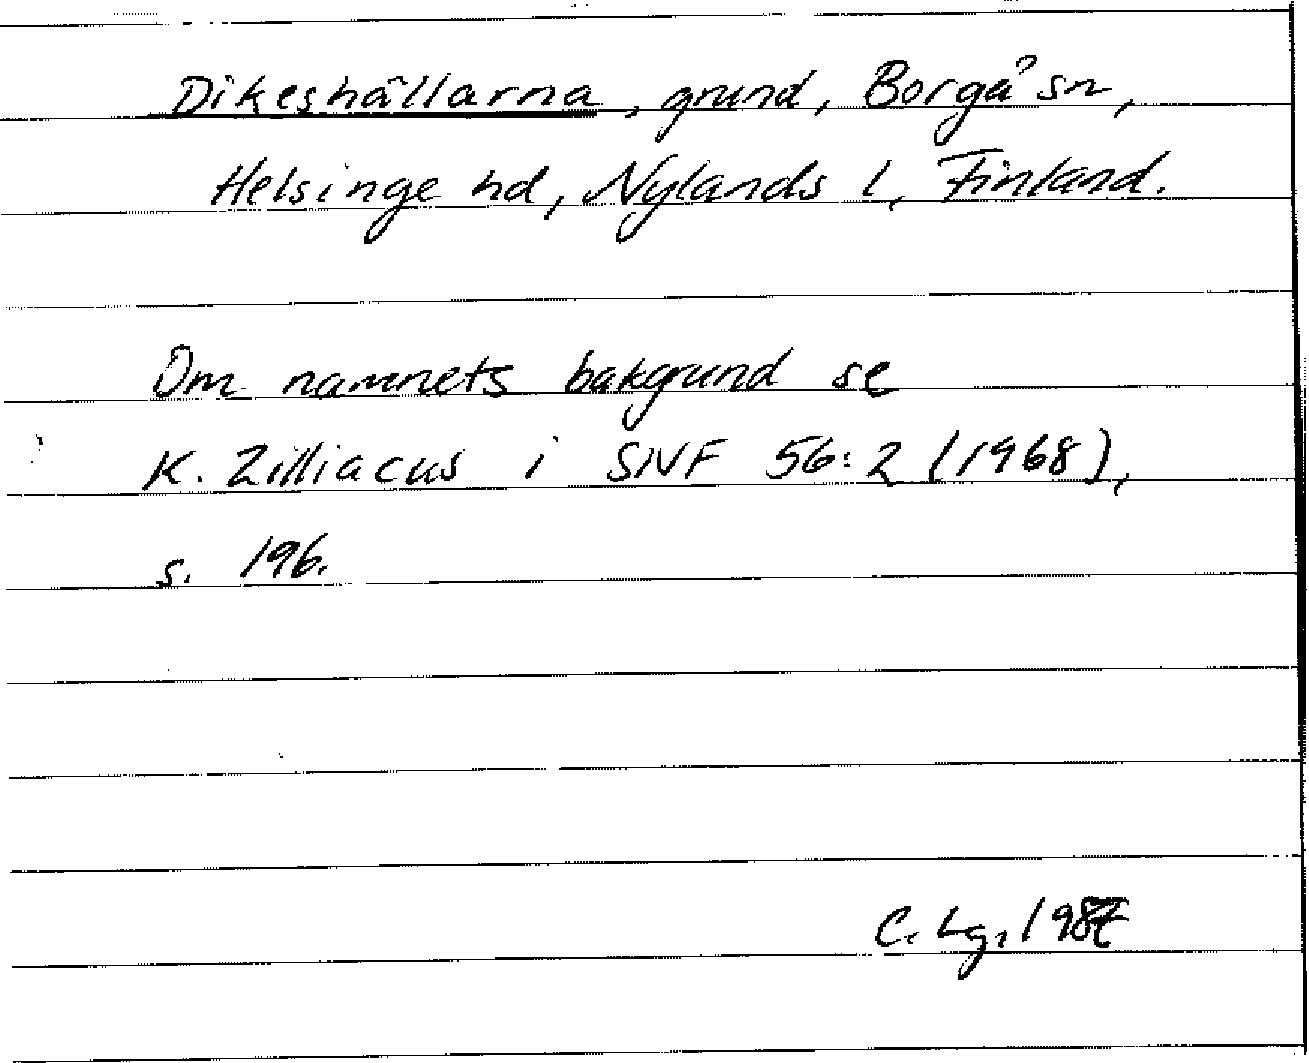 Dikeshällarna, grund, Borgå sn,
Helsinge hd, Nylands l, Finland.
Om namnets bakgrund se
K. Zilliacus i SNF 56:2 (1968),
s. 196.
C. Lg, 1987